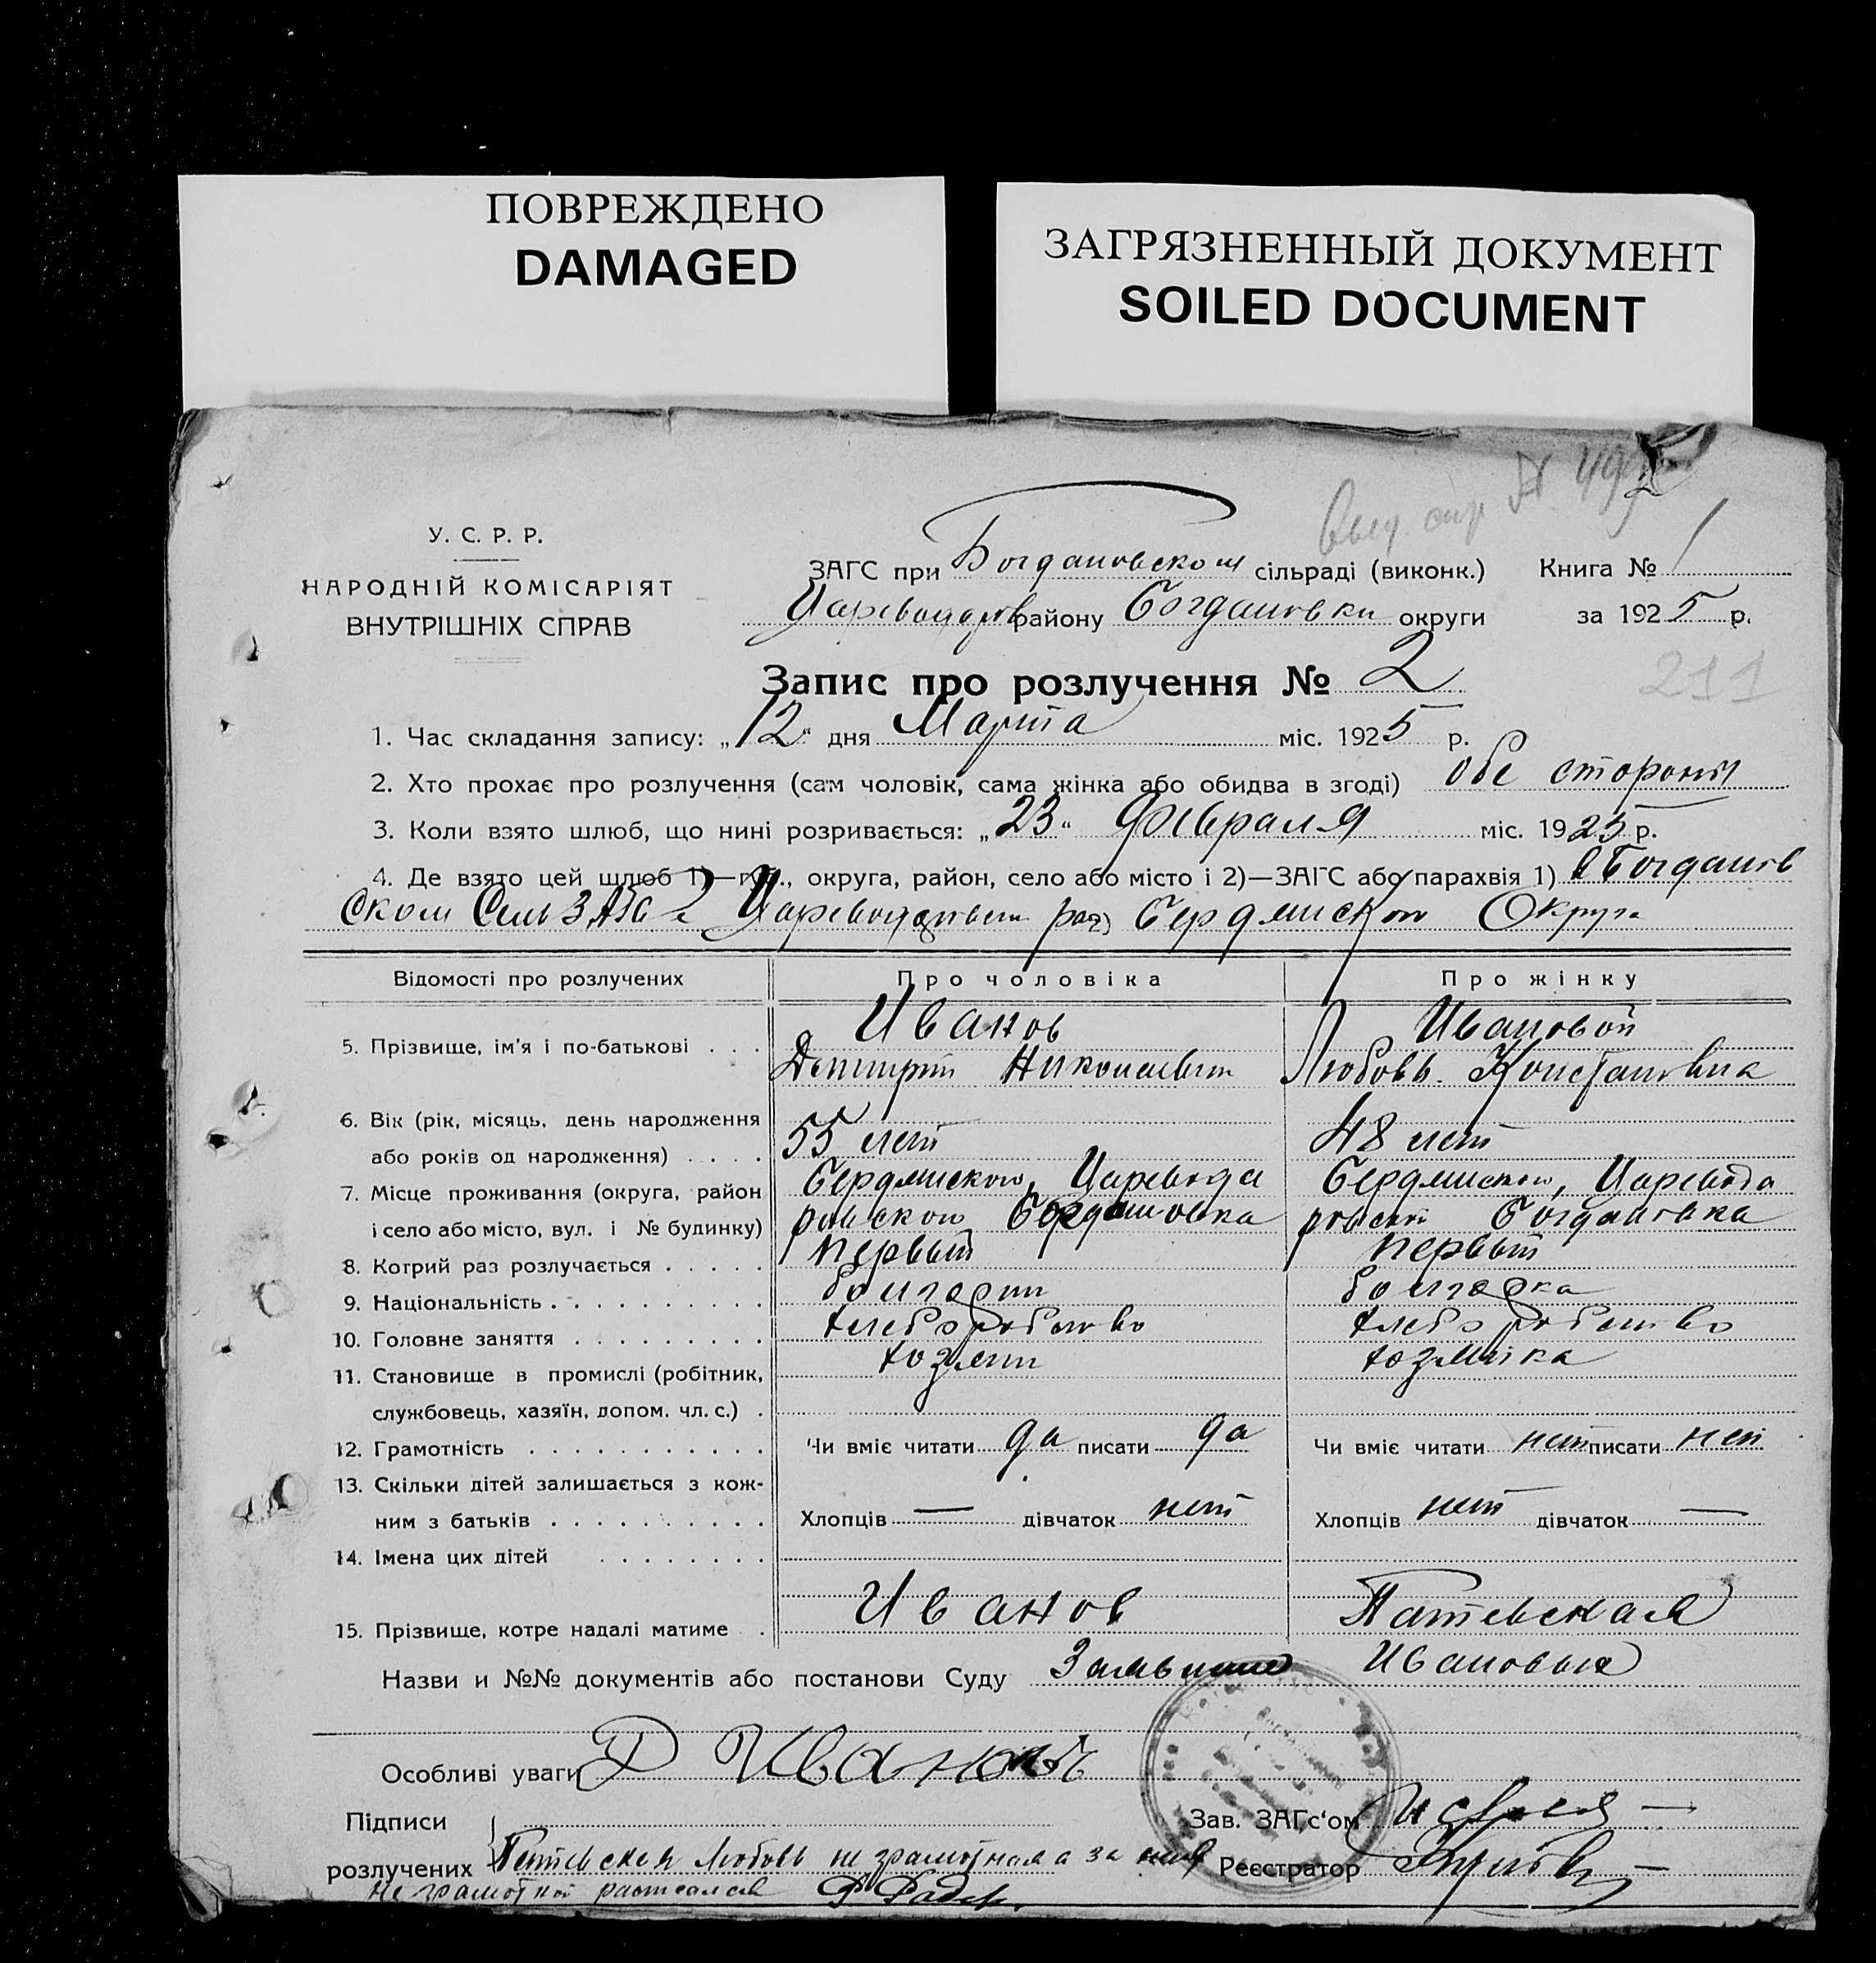 ПОВРЕЖДЕНО
DAMAGED
ЗАГРЯЗНЕННЫЙ ДОКУМЕНТ
SOILED DOCUMENT
У. С. Р. Р.
НАРОДНІЙ КОМІСАРІЯТ
ВНУТРІШНІХ СПРАВ
ЗАГС при Богдановском сільраді (виконк.) Книга № 1
району Богдановки округи за 1925 р.
211
Запис про розлучення № 2
1. Час складання запису: „12“ дня Марта міс. 1925 р.
2. Хто прохає про розлучення (сам чоловік, сама жінка або обидва в згоді) обе стороны
3. Коли взято шлюб, що нині розривається: „23“ Февраля міс. 1925 р.
4. Де взято цей шлюб 1)—губ., округа, район, село або місто і 2)—ЗАГС або парахвія 1) в Богданов
ском Сель ЗАГС Округа
Відомості про розлучених Про чоловіка Про жінку
5. Прізвище, ім'я і по-батькові . . . Иванов Ивановой
Дмитрий Николаевич Любовь Константиовна
6. Вік (рік, місяць, день народження
або років од народження) . . . . 55 лет 48 лет
7. Місце проживання (округа, район Бердянского, Царевода Бердянского, Царевода
і село або місто, вул. і № будинку) ровского Богдановка ровского Богдановка
8. Котрий раз розлучається . . . . . первый первый
9. Національність . . . . . . . . . . болгарин болгарка
10. Головне заняття . . . . . . . . . хлеборобство хлеборобство
11. Становище в промислі (робітник, хозяин хозяйка
службовець, хазяїн, допом. чл. с.) .
12. Грамотність . . . . . . . . . . . Чи вміє читати да писати да Чи вміє читати нет писати нет
13. Скільки дітей залишається з кож-
ним з батьків . . . . . . . . . . Хлопців — дівчаток нет Хлопців нет дівчаток —
14. Імена цих дітей . . . . . . . .
15. Прізвище, котре надалі матиме . Иванов Патевская
Назви и №№ документів або постанови Суду Заявление Ивановых
Особливі уваги Д Иванов
Підписи Зав. ЗАГс'ом
розлучених Патевская Любовь не грамотная а за Реєстратор
не грамотной расписался